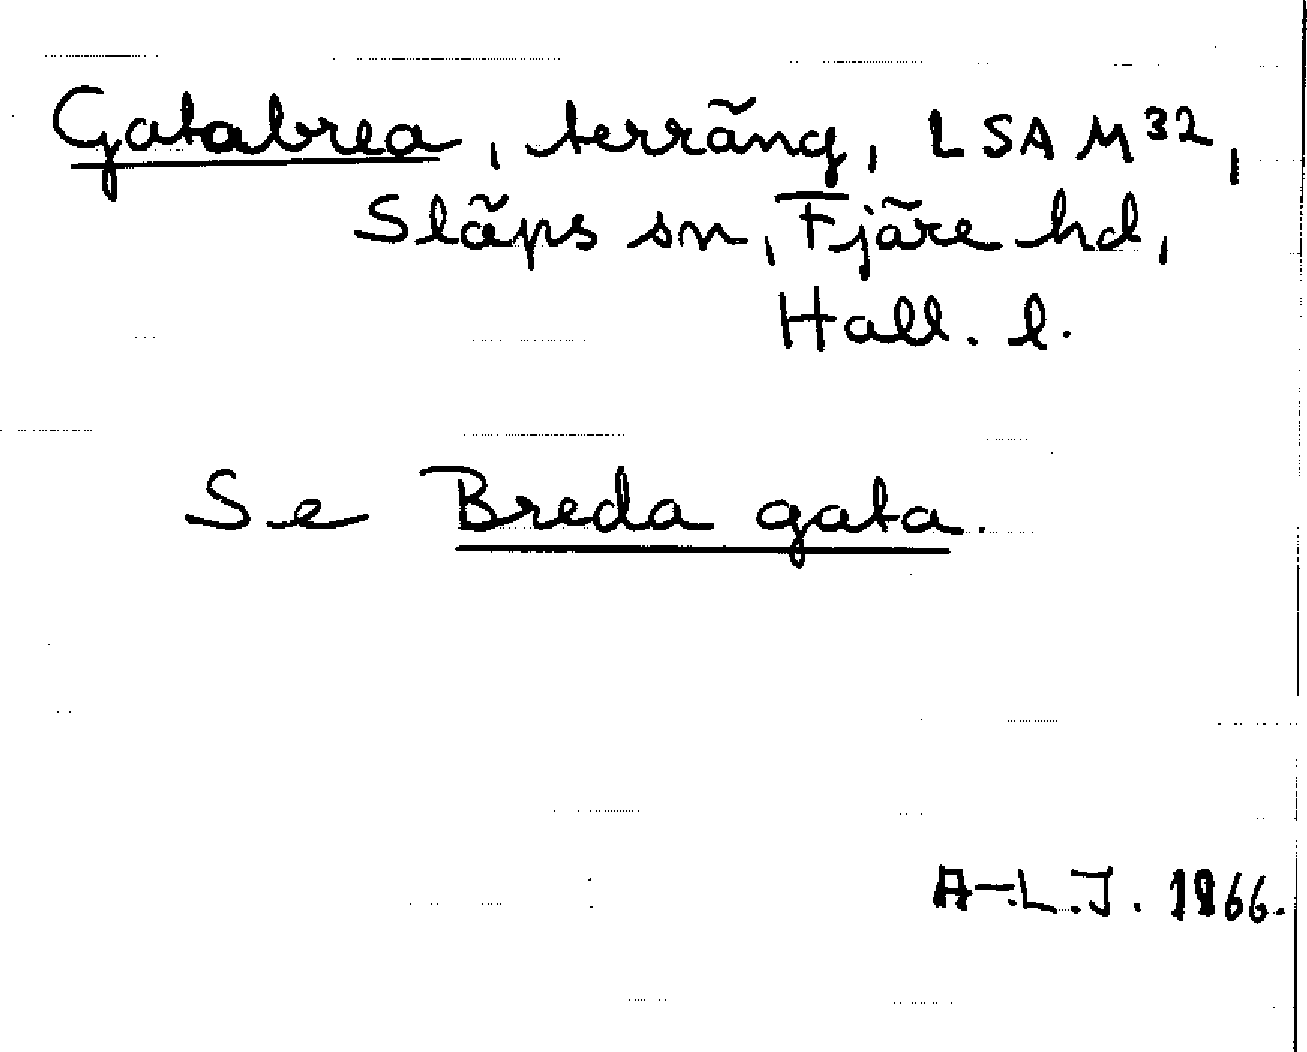 Gatabrea, terräng, LSA M32,
Släps sn, Fjäre hd,
Hall. l.
Se Breda gata.
A-L.J. 1966.